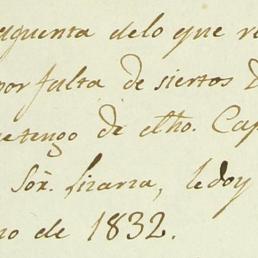 aquenta delo que re
por falta de siertos D
etengo de dho. Cap
Sór. Lizarra, ledoy
no de 1832.